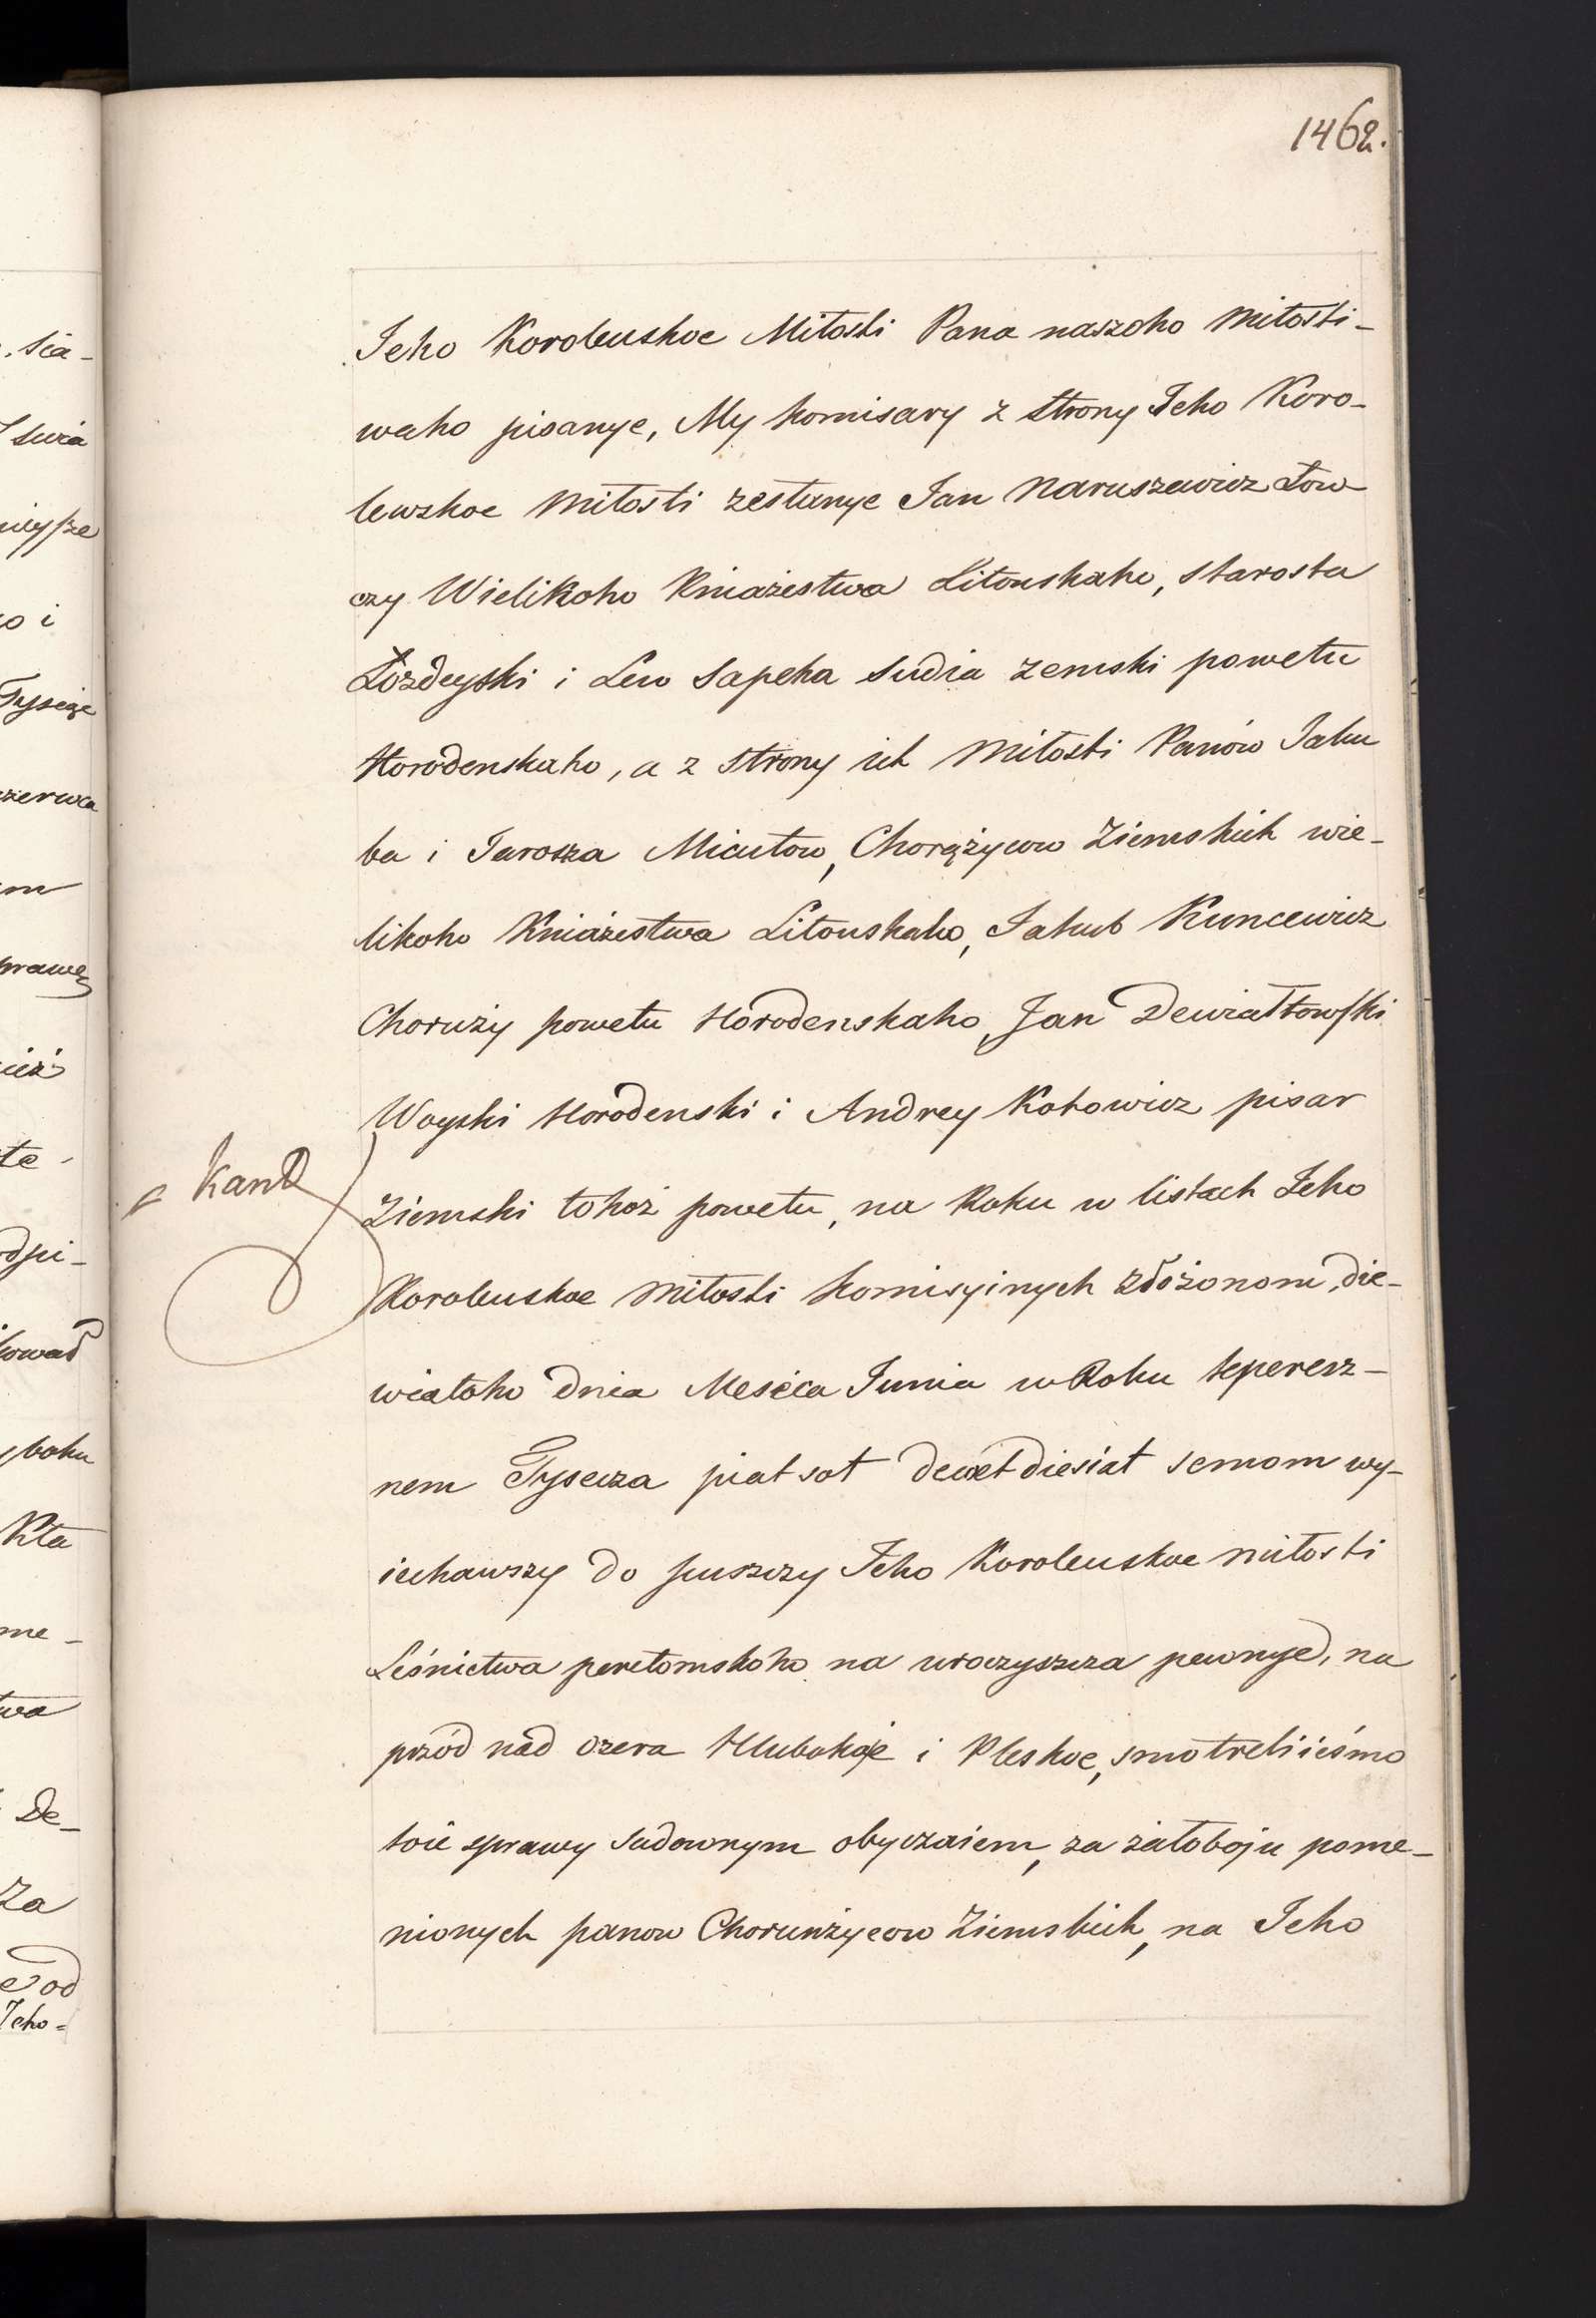 1462.
Jeho Korolewskoe Miłosti Pana naszoho miłosti-
waho pisanye, My komisary z strony Jeho Koro-
lewskoe miłosti zesłanye Jan Naruszewicz Łow
czy Wielikoho Kniażestwa Litouskaho, starosta
Łozdeyski i Lew Sapeha Sudia zemski powetu
Horodenskaho, a z strony ich Miłosti Panów Jaku
ba i Jarosza Micutow, Chorążycow Ziemskich wie-
likoho Kniażestwa Litouskaho, Jakub Kuncewicz
Choruży powetu Horodenskaho, Jan Dewiałtowski
Woyski Horodenski i Andrey Kotowicz pisar
Kant
Ziemski tohoż powetu, na Roku w listach Jeho
Korolewskoe miłosti komisyinych złożonom, die-
wiatoho dnia Meseca Junia w Roku teperesz-
nem Tysecza piatsot dewetdiesiat semom wy-
iechawszy do puszczy Jeho Korolewskoe miłosti
Leśnictwa perełomskoho na uroczyszcza pewnye, na
przód nad ozera Hlubokoje i Pleskoe, smotreliieśmo
toie sprawy sudownym obyczaiem, za żałoboju pome-
nionych panow Chorunżycow Ziemskich, na Jeho